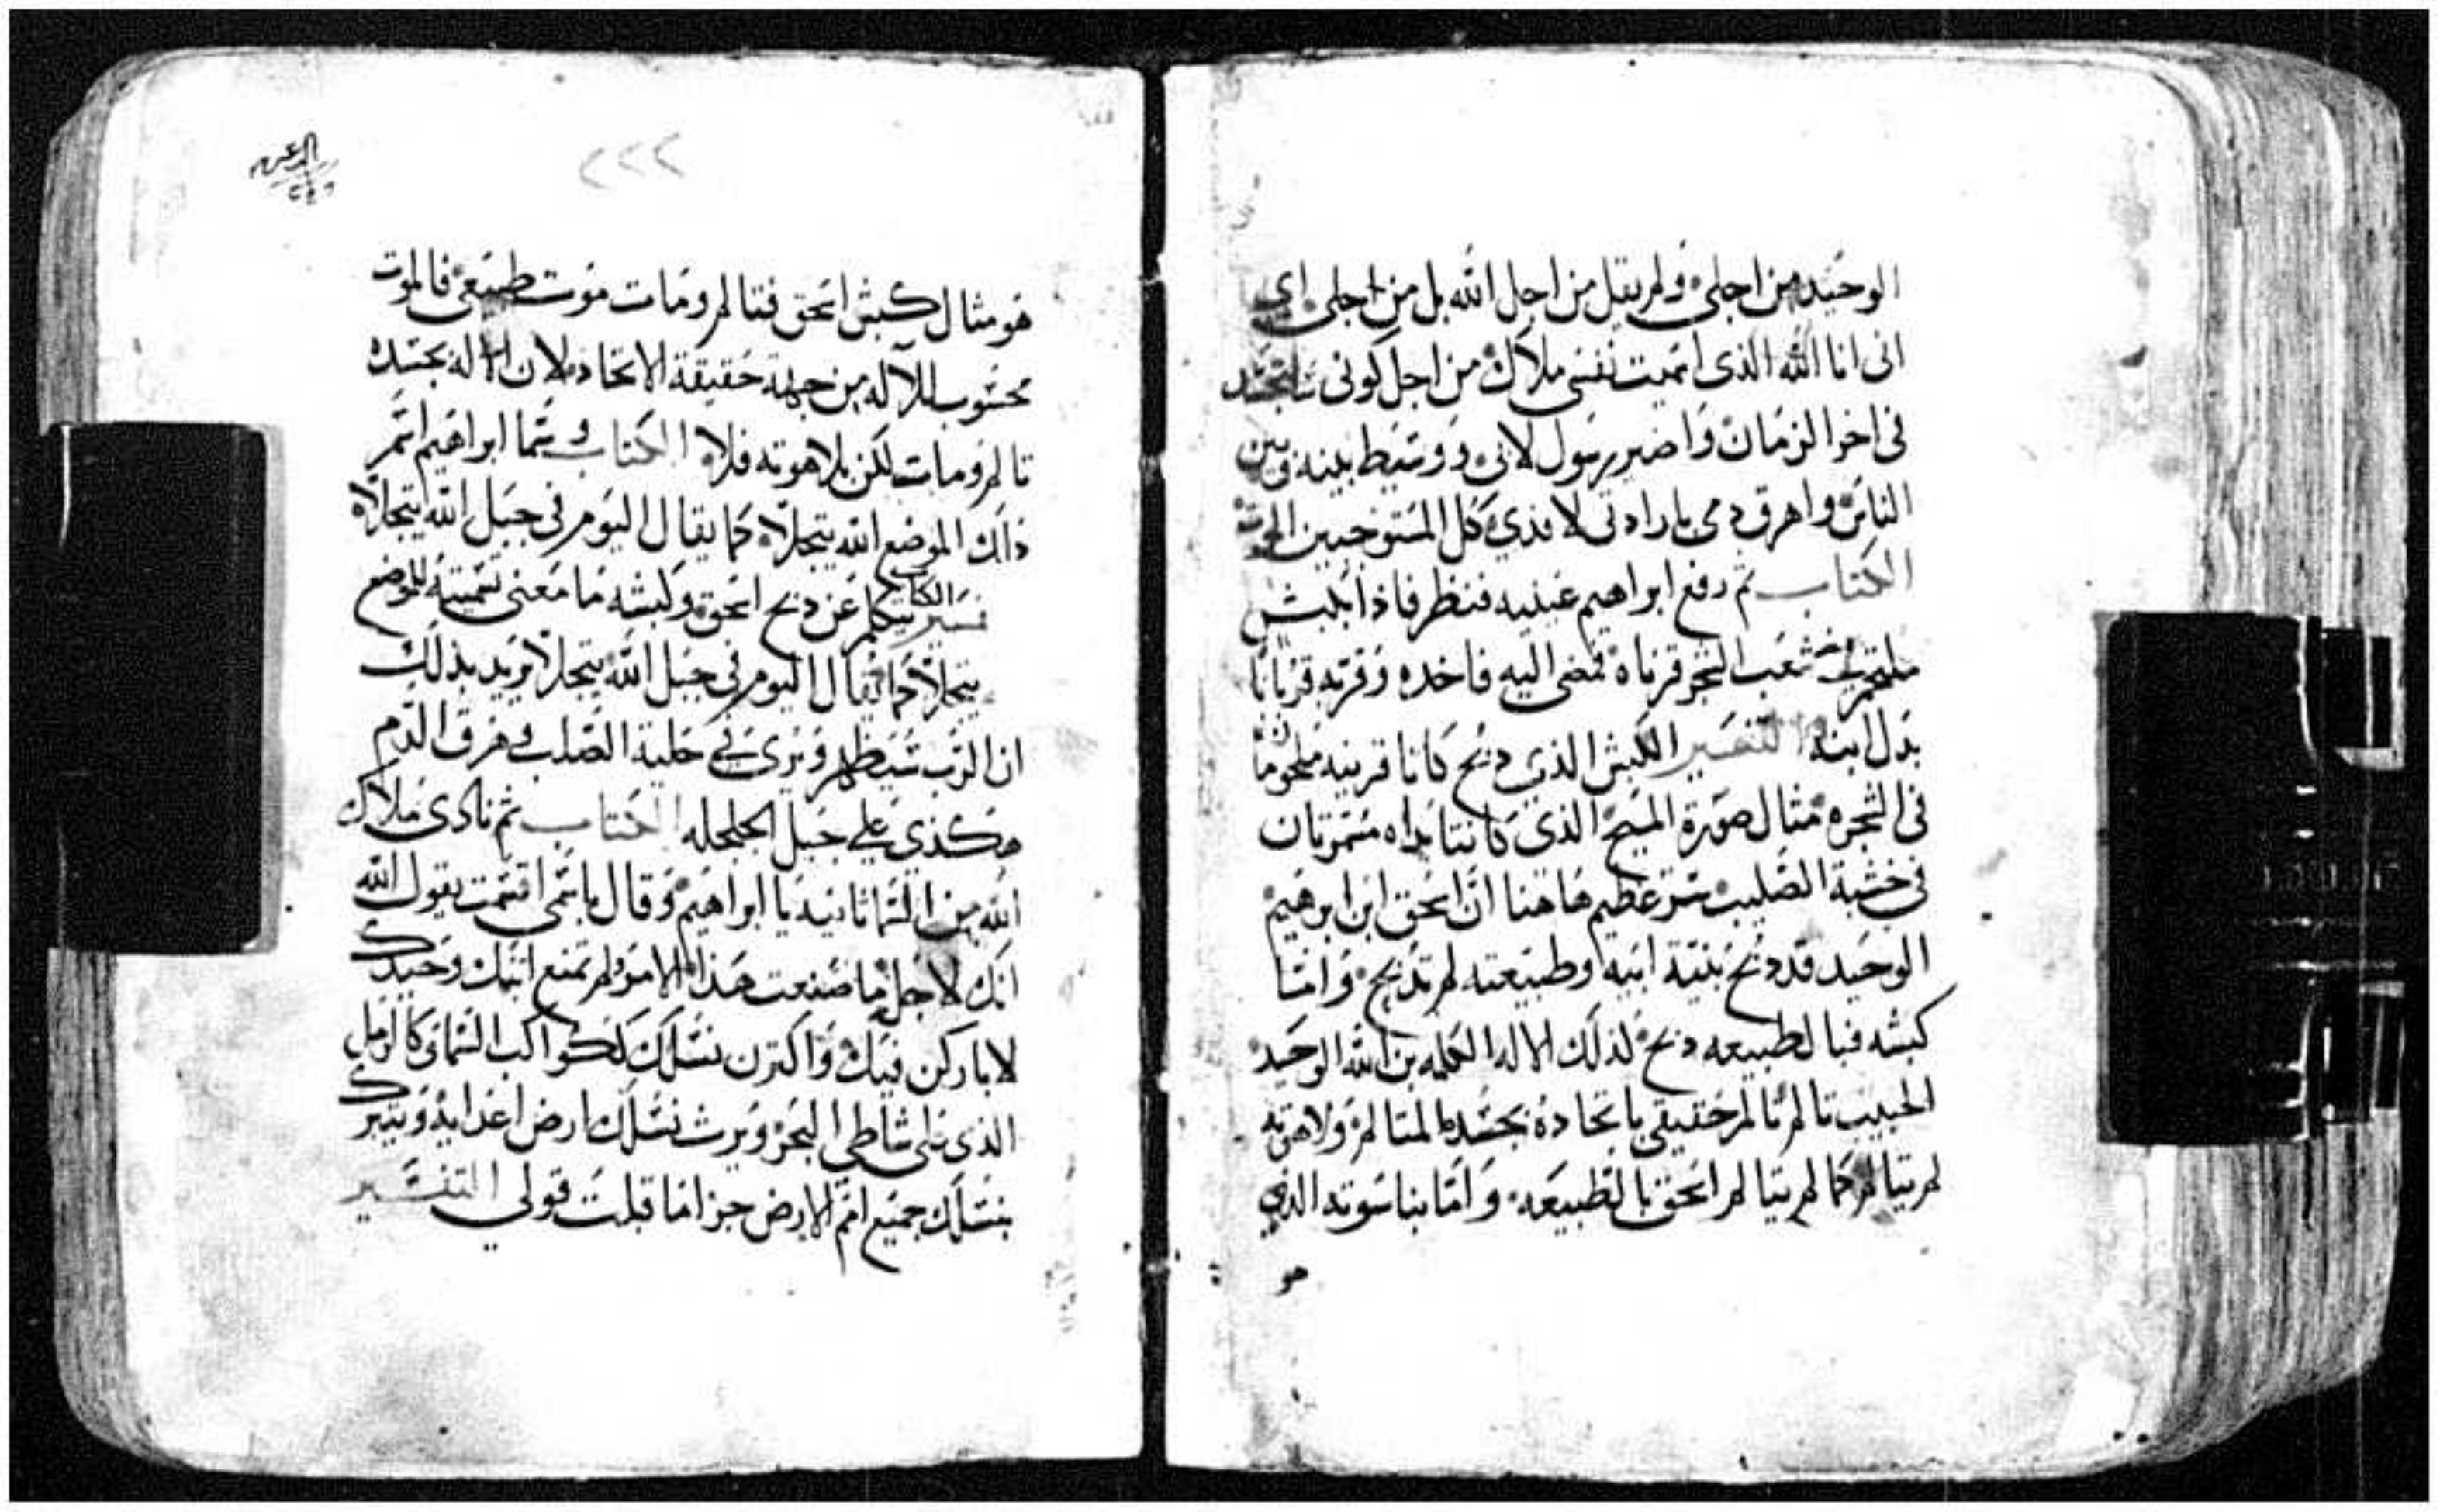 الوحيد من اجلي ولم يقل من اجل الله بل من اجلي اي
انى انا الله الذى اسميت نفسي ملاك من اجل كونى ساتجسد
فى اخر الزمان واصير رسول لابى ووسيط بينه وبين
الناس واهرق دمى بارادتى لافدي كل المستوجبين الموت
الكتاب ثم رفع ابراهيم عينيه فنظر فاذا بكبش
ملتحم في شعب الشجر قرناه فمضى اليه فاخده وقربه قربانا
بدل ابنه التفسير الكبش الذي دبح كانا قرنيه ملحومًا
فى الشجره مثال صورة المسيح الذى كانتا يداه مسمرتان
فى خشبة الصليب سر عظيم هاهنا ان اسحق ابن ابرهيم
الوحيد قد دبح بنية ابيه وطبيعته لم تدبح وامّا
كبشه فبالطبيعه دبح لذلك الاله الكلمه بن الله الوحيد
الحبيب تالم تالم حقيقي باتحاده بجسده المتالم ولاهوته
لم يتالم كما لم يتالم اسحق بالطبيعه وامّا بناسوته الذي
هو
٢٢٢
هو مثال كبش اسحق فتالم ومات موت طبيعي فالموت
محسوب للاله من جهة حقيقة الاتحاد لان الاله بجسده
تالم ومات لكن بلاهوته فلا الكتاب وسما ابراهيم اسم
ذلك الموضع الله يتجلا كما يقال اليوم فى جبل الله يتجلا
تفسير الكتاب يتكلم عن دبح اسحق وكبشه ما معنى تسميته للموضع
يتجلا كما يقال اليوم فى جبل الله يتجلا يريد بذلك
ان الرب سيظهر ويرى في حلية الصلب وهرق الدم
هكذي علي جبل الجلجله الكتاب ثم نادى ملاك
الله من السما ثانيه يا ابراهيم وقال باسمى اقسمت يقول الله
انك لاجل ما صنعت هذا الامر ولم تمنع ابنك وحيدك
لاباركن فيك واكترن نسلك ككواكب السما وكالرمل
الذى على شاطي البحر ويرث نسلك ارض اعدايه ويتبرك
بنسلك جميع امم الارض جزا ما قبلت قولي التفسير